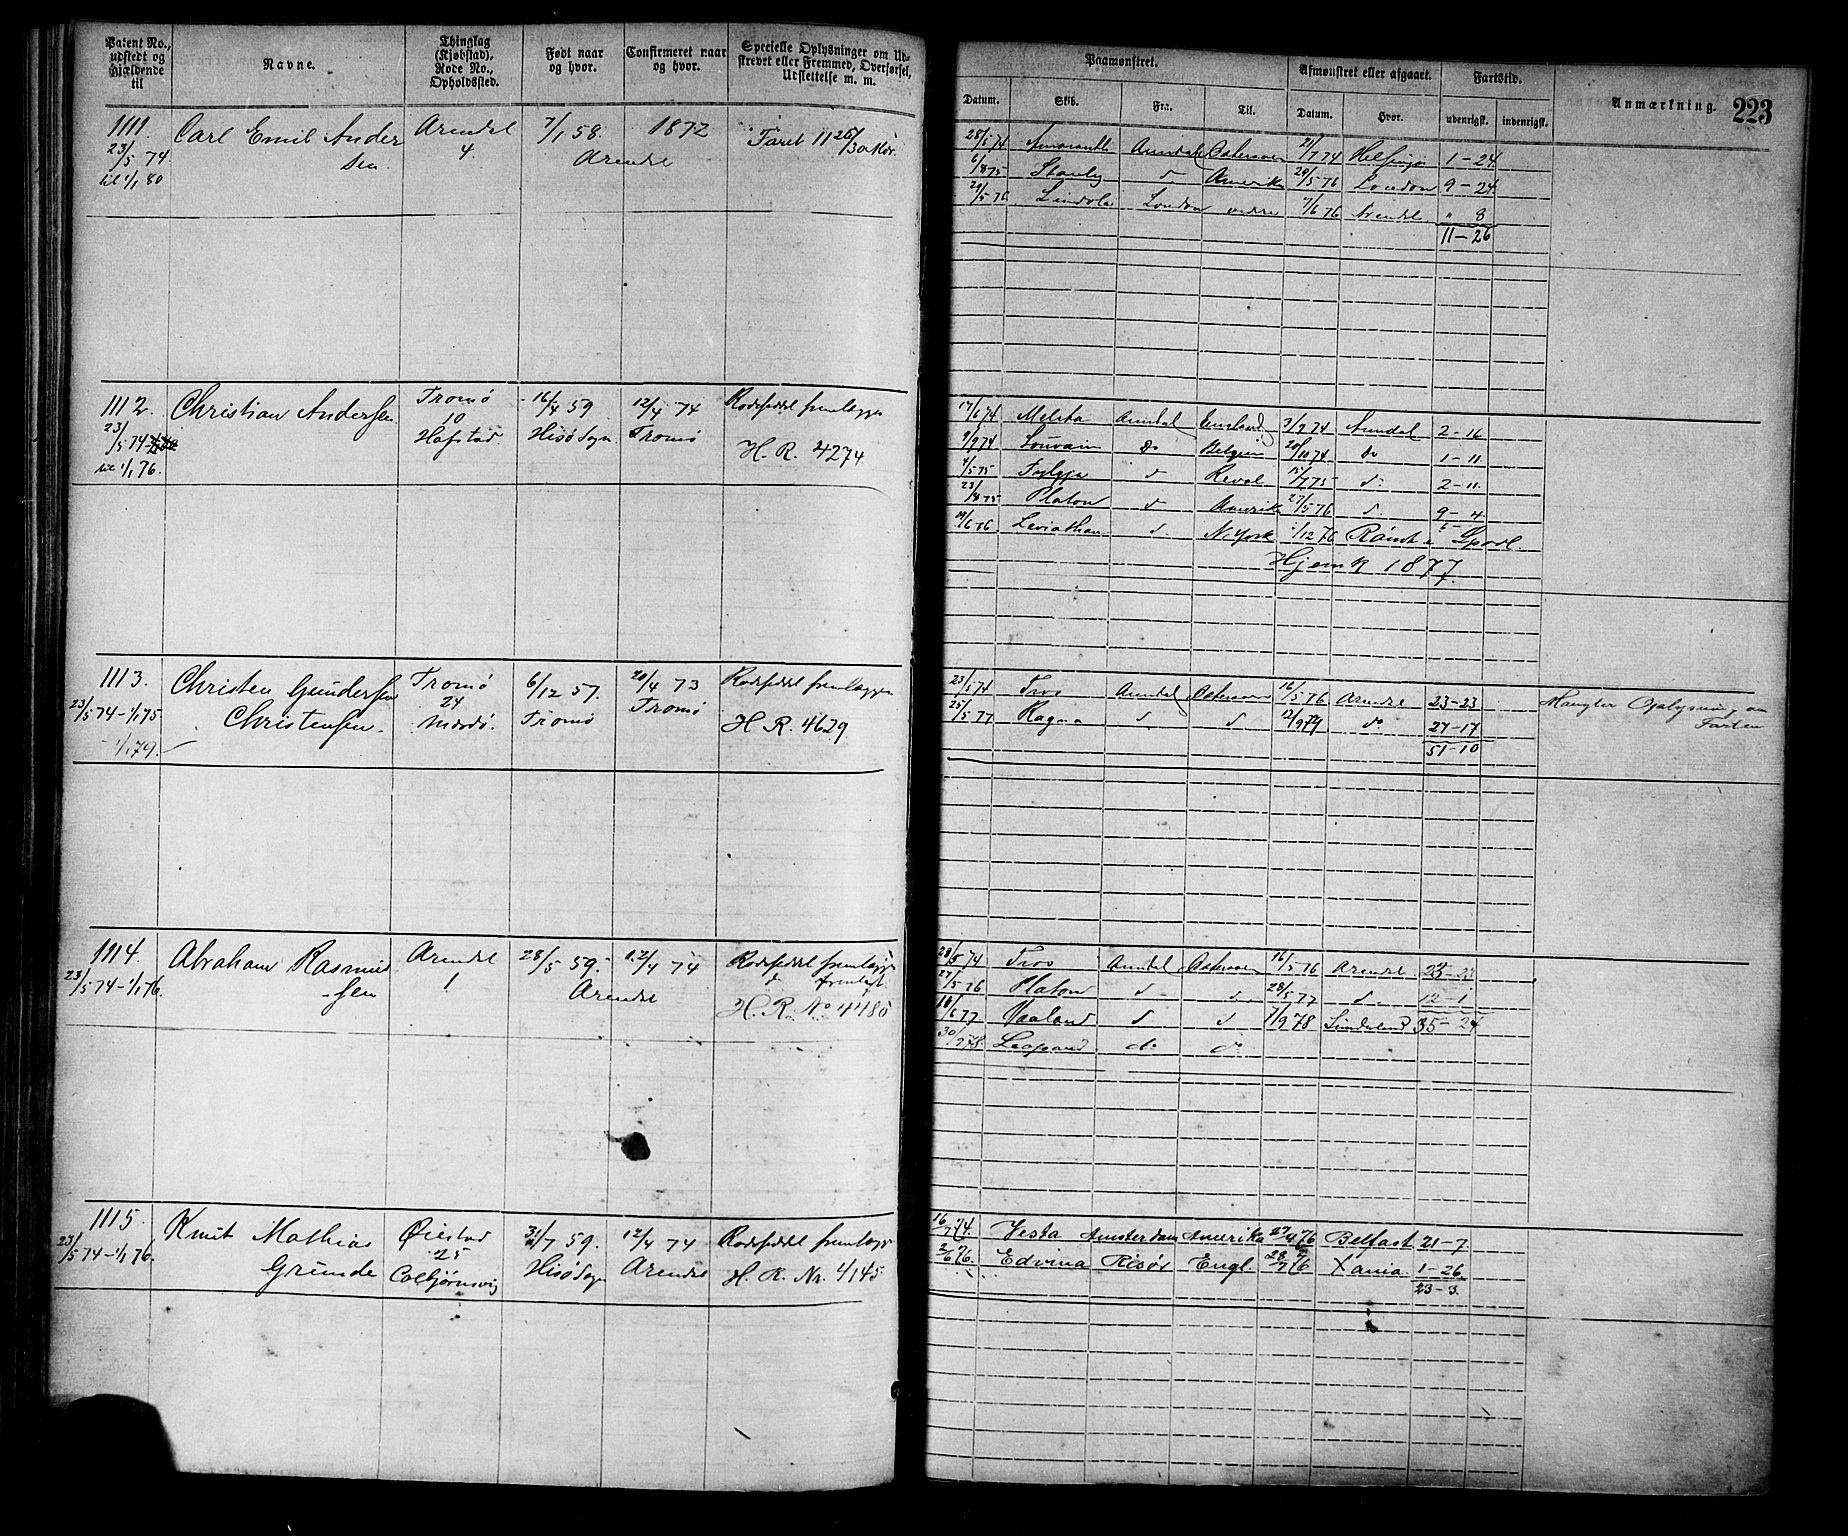 Patent No., udstedt og gjældende til
Navne.
Thinglag (Kjøbstad), Rode No., Opholdssted.
Født naar og hvor.
Confirmeret naar og hvor.
Specielle Oplysninger om Udskrevet eller Fremmed, Overførsel, Udslettelse m. m.
Paamønstret.
Afmønstret eller afgaaet.
Fartstid.
Anmærkning.
223
Datum.
Skib.
Fra.
Til.
Datum.
Hvor.
udenrigsk.
indenrigsk.
1111. Carl Emil Ander Arendel 7/1 58. 1872 Faret 11 26/30 Mdr.
23/5 74 sen 4. Arendel
til 1/1 80
28/5 74 Arendal Østersøen 21/7 74 Helsingør 1-24
6/8 75 Stanley d Amerika 29/5 76 London 9-24
29/5 76 Lindola London 7/6 76 Arendel " 8
11-26
1112. Christian Andersen Tromø 16/4 59 12/4 74 Rodeseddel fremlægges
23/5 74 10 Hisø Sogn. Tromø
til 1/1 76. Hofstad H. R. 4274
17/6 74 Melita Arendal 3/9 74 Arendal 2-16
9/9 74 Louvain Do Belgien 20/10 74 do 1-11
4/5 75 Fylgja d Reval 12/7 75 d 2-11
23/8 75 Platon d Amerika 27/5 76 d 9-4
19/6 76 Leviathan d. N. York 1/12 76 Rømt
Hjemk 1877
1113. Christen Gundersen Tromø 6/12 57. 20/4 73 Rodeseddel fremlægges
23/5 74-1/1 75 Christensen. 24 Tromø Tromø
-1/1 79. Mærdø. H. R. 4629
23/5 74 Tros Arendal Østersøen 16/5 76 Arendel 23-23 Mangler Oplysning om
25/5 77 Ragna d d 12/9 79 do 27-17 Farten
51-10
1114. Abraham Rasmus Arendel 28/5 59. 12/4 74 Rodeseddel fremlægges
23/5 74-1/1 76. sen 1 Arendel d fremlagt.
H. R. No 4180
28/5 74 Tros Arendal Østersøen 16/5 76 Arendel 23-23
27/5 76 Platon d d. 28/5 77 d. 12-1
10/6 77 Vaaland d d 7/9 78 35-24
30/9 78. Leopard do do
1115. Knut Mathias Øiestad 31/7 59. 12/4 74 Rodeseddel fremlægges
23/5 74-1/1 76. Grunde 25 Hisø Sogn Arendel H. R. Nr. 4145
Colbjørnsvig
16/7 74. Vesta Amsterdam Amerika 27/4 76 Belfast 21-7.
2/6 76. Edvina Risør Engl. 28/7 76 Xania. 1-26
23-3.